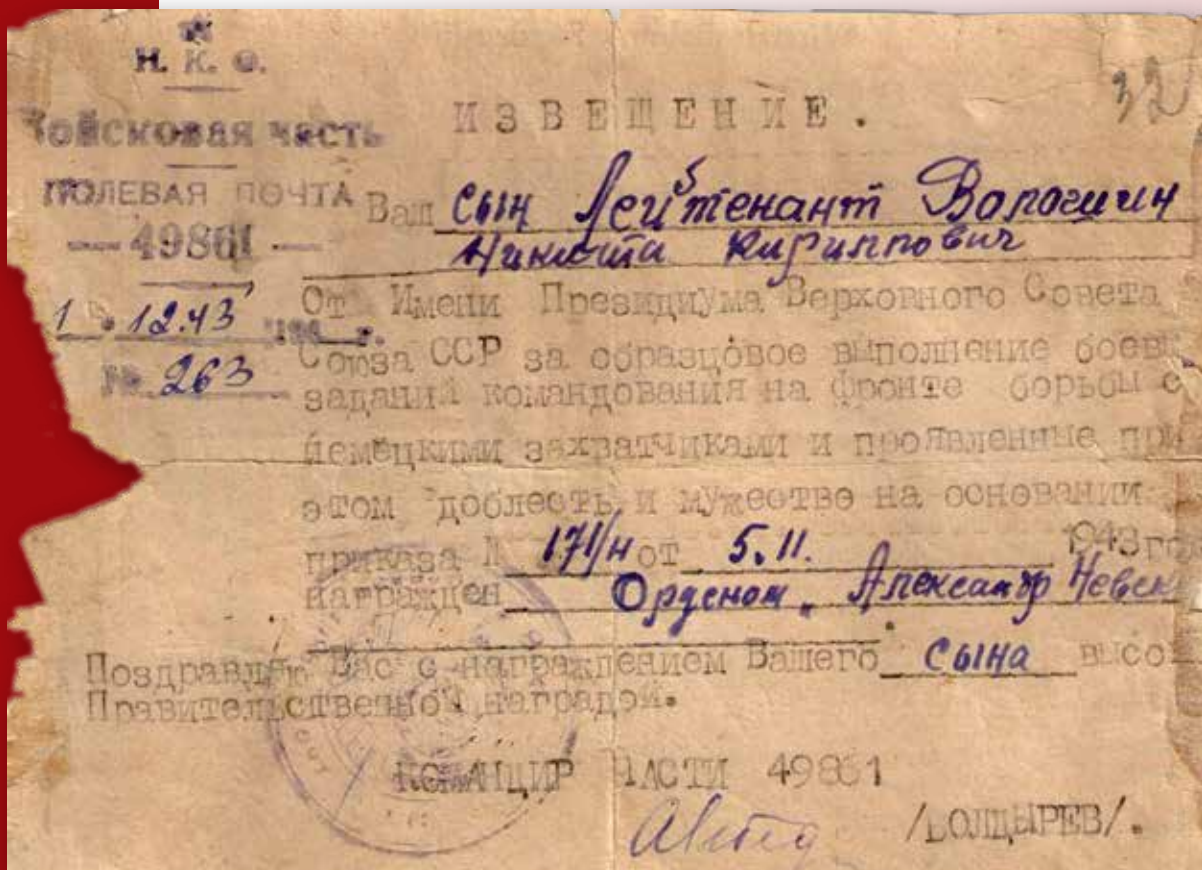 Н. К. О.
32
Войсковая часть
ИЗВЕЩЕНИЕ.
ПОЛЕВАЯ ПОЧТА
— 49861 —
Ваш сын Лейтенант Волошин
Никита Кириллович
1 12.43 194 г.
№ 263
От Имени Президиума Верховного Совета
Союза ССР за образцовое выполнение боевы
заданий командования на фронте борьбы с
немецкими захватчиками и проявленные при
этом доблесть и мужество на основании
приказа № 171/н от 5.11. 1943 го
награжден Орденом „Александр Невск
Поздравляю Вас с награждением Вашего сына высо
Правительственной наградой.
КОМАНДИР ЧАСТИ 49861
/БОЛДЫРЕВ/.